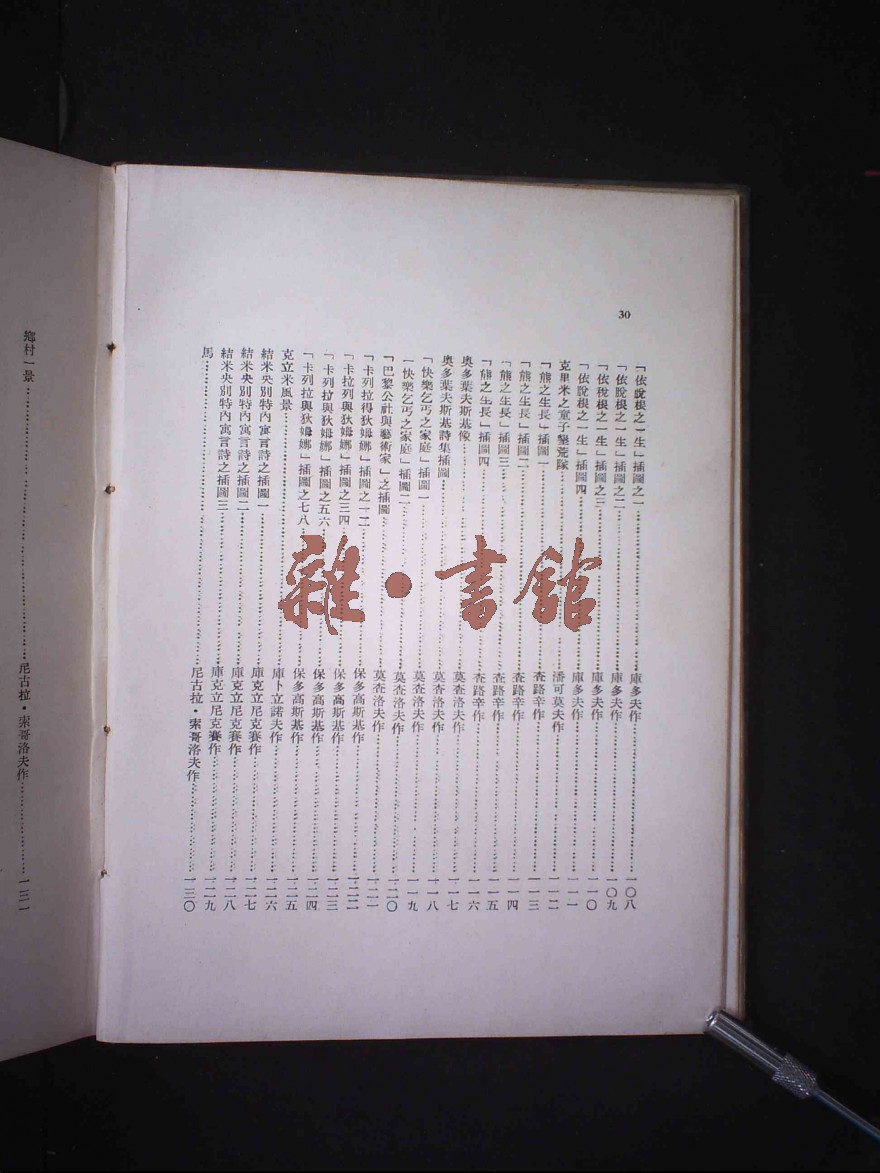 30
「依脫根之一生」插圖之一……庫多夫作……一〇八
「依脫根之一生」插圖之二……庫多夫作……一〇九
「依稅根之一生」插圖之三……庫多夫作……一一〇
「依脫根之一生」插圖四……庫多夫作……一一一
克里米之童子墾荒隊……潘可莫夫作……一一二
「熊之生長」插圖一……查路辛作……一一三
「熊之生長」插圖二……查路辛作……一一四
「熊之生長」插圖三……查路辛作……一一五
「熊之生長」插圖四……查路辛作……一一六
奧多葉夫斯基像……莫查洛夫作……一一七
奧多葉夫斯基詩集插圖……莫查洛夫作……一一八
「快樂乞丐之家庭」插圖一……莫查洛夫作……一一九
「快樂乞丐之家庭」插圖二……莫查洛夫作……一二〇
「巴黎公社與藝術家」之插圖……莫查洛夫作……一二一
「卡列拉得狄姆娜」插圖之一二……保多高斯基作……一二二
「卡拉列與狄姆娜」插圖之三四……保多高斯基作……一二三
「卡列拉與狄姆娜」插圖之五六……保多高斯基作……一二四
「卡列拉與狄姆娜」插圖之七八……保多高斯基作……一二五
克立米風景……庫卜立諾夫作……一二六
結米央別特內寓言詩之插圖一……庫克立尼克賽作……一二七
結米央別特內寓言詩之插圖二……庫克立尼克賽作……一二八
結米央別特內寓言詩之插圖三……庫克立尼克賽作……一二九
馬……尼古拉・索哥洛夫作……一三〇
鄉村一景……尼古拉・索哥洛夫作……一三一
雜・書館